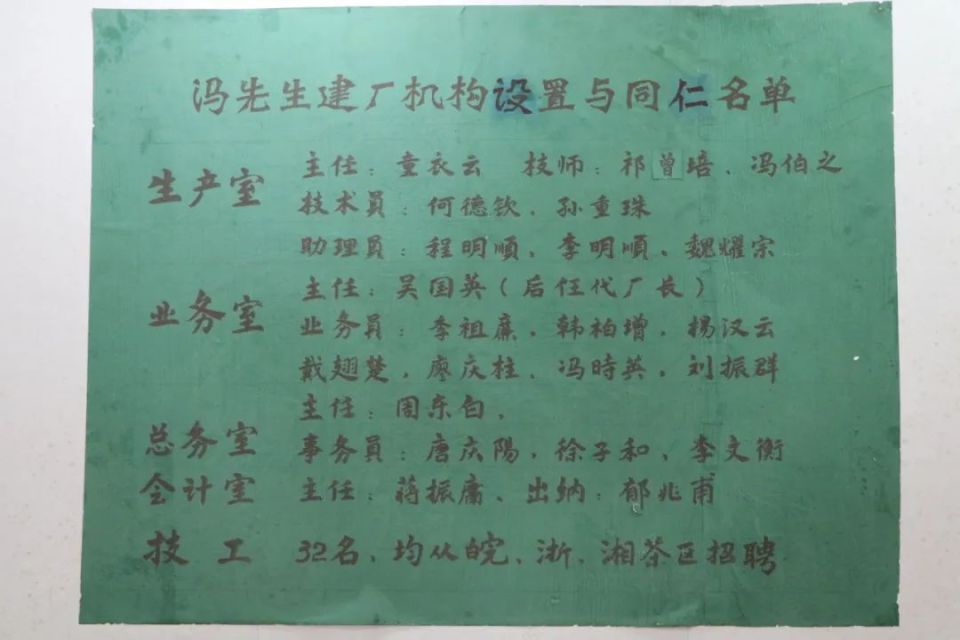 冯先生建厂机构设置与同仁名单
生产室 主任：童衣云 技师：祁曾培、冯伯之
技术員：何德钦、孙重珠
助理員：程明順、李明順、魏耀宗
业务室 主任：吴国英（后任代厂长）
业务员：季祖廉，韩柏增，楊汉云
戴翅楚，廖庆柱、冯時英，刘振群
总务室 主任：周东白，
事务員：唐庆陽，徐子和、李文衡
会计室 主任：蒋振庸、出纳：郁兆甫
技工 32名，均从皖、浙、湘茶区招聘